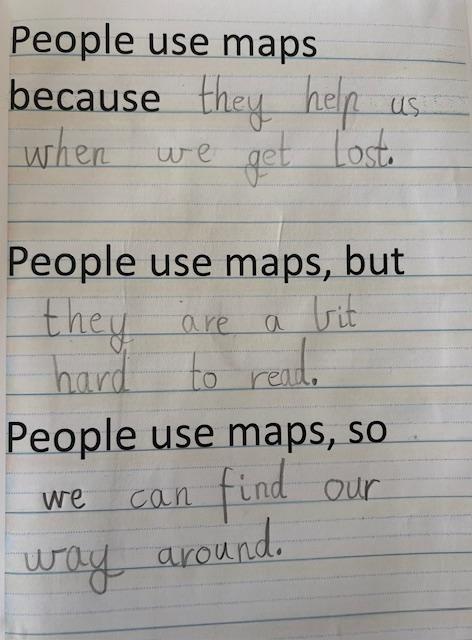 People use maps
because they help us
when we get lost.
People use maps, but
they are a bit
hard to read.
People use maps, so
we can find our
way around.